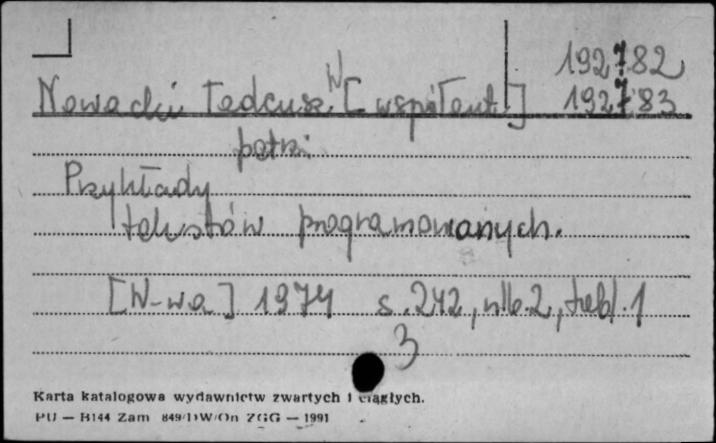 192782
W
Nowacki Tadeusz [współaut.] 192783
patrz:
Przykłady
tekstów programowanych.
[W-wa] 1974 s. 242, nlb. 2, tabl. 1
3
Karta katalogowa wydawnictw zwartych i ciągłych.
PU — B144 Zam 849/DW/On ZGG — 1991